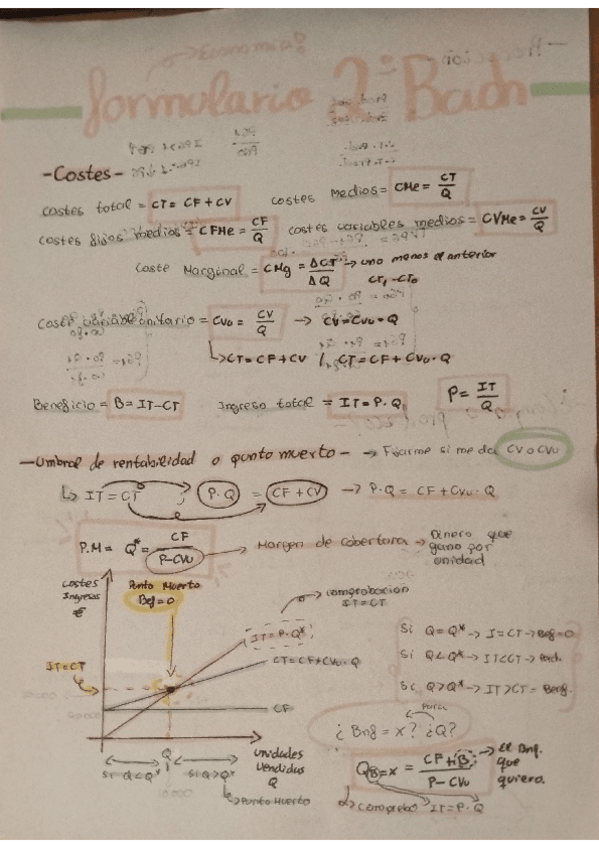 Economía
formulario 2º Bach
-Costes-
costes total = CT = CF + CV   costes medios = CMe = CT/Q
costes fijos medios = CFMe = CF/Q   costes variables medios = CVMe = CV/Q
Coste Marginal = CMg = ΔCT/ΔQ → uno menos el anterior
CT₁ - CT₀
Costes variable unitario = CVu = CV/Q → CV = CVu · Q
↳ CT = CF + CV / CT = CF + CVu · Q
Beneficio = B = IT - CT   Ingreso total = IT = P · Q   P = IT/Q
- Umbral de rentabilidad o punto muerto - → Fijarme si me da CV o CVu
↳ IT = CT ; P·Q = CF + CV → P·Q = CF + CVu · Q
P.M = Q* = CF/P-CVu → Margen de cobertura → Dinero que
gano por
unidad
costes
Ingresos
€
Punto Muerto
Bef = 0
comprobación
IT = CT
IT = P·Q*
CT = CF + CVu · Q
IT = CT
CF
Si Q = Q* → I = CT → Bef = 0
Si Q < Q* → IT < CT →
Si Q > Q* → IT > CT =
Para
¿Bnf = x? ¿Q?
Q
Si Q < Q*   Si Q > Q*
Unidades
Vendidas
Q
↳ Punto Muerto
Q B=x = CF + B/P - CVu → El Bnf.
que
quiero.
↳ compruebo IT = P·Q